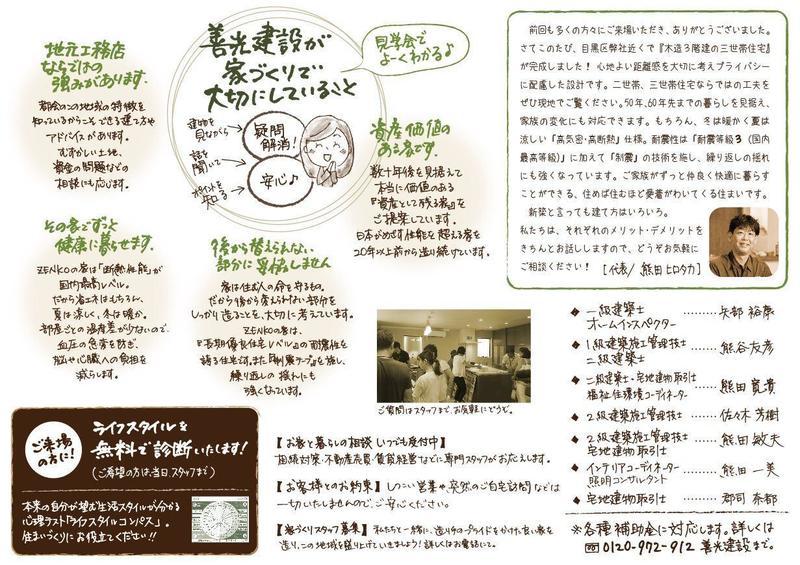 善光建設が
家づくりで
大切にしていること
見学会で
よーくわかる♪
建物を
見ながら
話を
聞いて
ポイントを
知る
疑問
解消!
安心♪
地元工務店
ならではの
強みがあります。
都会のこの地域の特徴を
知っているからこそできる建て方や
アドバイスがあります。
むずかしい土地、
資金の問題などの
相談にも応じます。
資産価値の
ある家です。
数十年後を見据えて
本当に価値のある
『資産として残る家』を
ご提案しています。
日本がめざす性能を超える家を
20年以上前から造り続けています。
その家でずっと
健康に暮せます。
ZENKOの家は「断熱性能」が
国内最高レベル。
だから省エネはもちろん、
夏は涼しく、冬は暖か。
部屋ごとの温度差が少ないので、
血圧の急変を防ぎ、
脳や心臓への負担を
減らします。
後から替えられない
部分に妥協しません
家は住む人の命を守るもの。
だから後から変えられない部分を
しっかり造ることを、大切に考えています。
ZENKOの家は、
『長期優良住宅レベル』の耐震性を
誇る住宅です。また『制震テープ』を施し、
繰り返しの揺れにも
強くなっています。
前回も多くの方々にご来場いただき、ありがとうございました。
さてこのたび、目黒区弊社近くで『木造3階建の三世帯住宅』
が完成しました! 心地よい距離感を大切に考えプライバシー
に配慮した設計です。二世帯、三世帯住宅ならではの工夫を
ぜひ現地でご覧ください。50年、60年先までの暮らしを見据え、
家族の変化にも対応できます。もちろん、冬は暖かく夏は
涼しい「高気密・高断熱」仕様。耐震性は「耐震等級3(国内
最高等級)」に加えて「制震」の技術を施し、繰り返しの揺れ
にも強くなっています。ご家族がずっと仲良く快適に暮らす
ことができる、住めば住むほど愛着がわいてくる住まいです。
新築と言っても建て方はいろいろ。
私たちは、それぞれのメリット・デメリットを
きちんとお話ししますので、どうぞお気軽に
ご相談ください! [代表/熊田ヒロタカ]
ご質問はスタッフまで、お気軽にどうぞ。
◆ 一級建築士
ホームインスペクター ………… 矢部 裕康
◆ 1級建築施工管理技士
二級建築士 ……… 熊谷友彦
◆ 二級建築士・宅地建物取引士
福祉住環境コーディネーター … 熊田 寛貴
◆ 2級建築施工管理技士 ……… 佐々木 芳樹
◆ 2級建築施工管理技士
宅地建物取引士 ……… 熊田 敏夫
◆ インテリアコーディネーター
照明コンサルタント ……… 熊田 一美
◆ 宅地建物取引士 ……… 郡司 奈都
※各種補助金に対応します。詳しくは
0120-972-912 善光建設まで。
ご来場
の方に!
ライフスタイルを
無料で診断いたします!
(ご希望の方は、当日、スタッフまで)
本来の自分が望む生活スタイルが分かる
心理テスト「ライフスタイルコンパス」。
住まいづくりにお役立てください!!
【お家と暮らしの相談 いつでも受付中】
相続対策・不動産売買・賃貸経営などに専門スタッフがお応えします。
【お客様とのお約束】しつこい営業や突然のご自宅訪問などは
一切いたしませんので、ご安心ください。
【家づくりスタッフ募集】私たちと一緒に、造り手のプライドをかけた良い家を
造り、この地域を盛り上げていきましょう!詳しくはお電話にて。